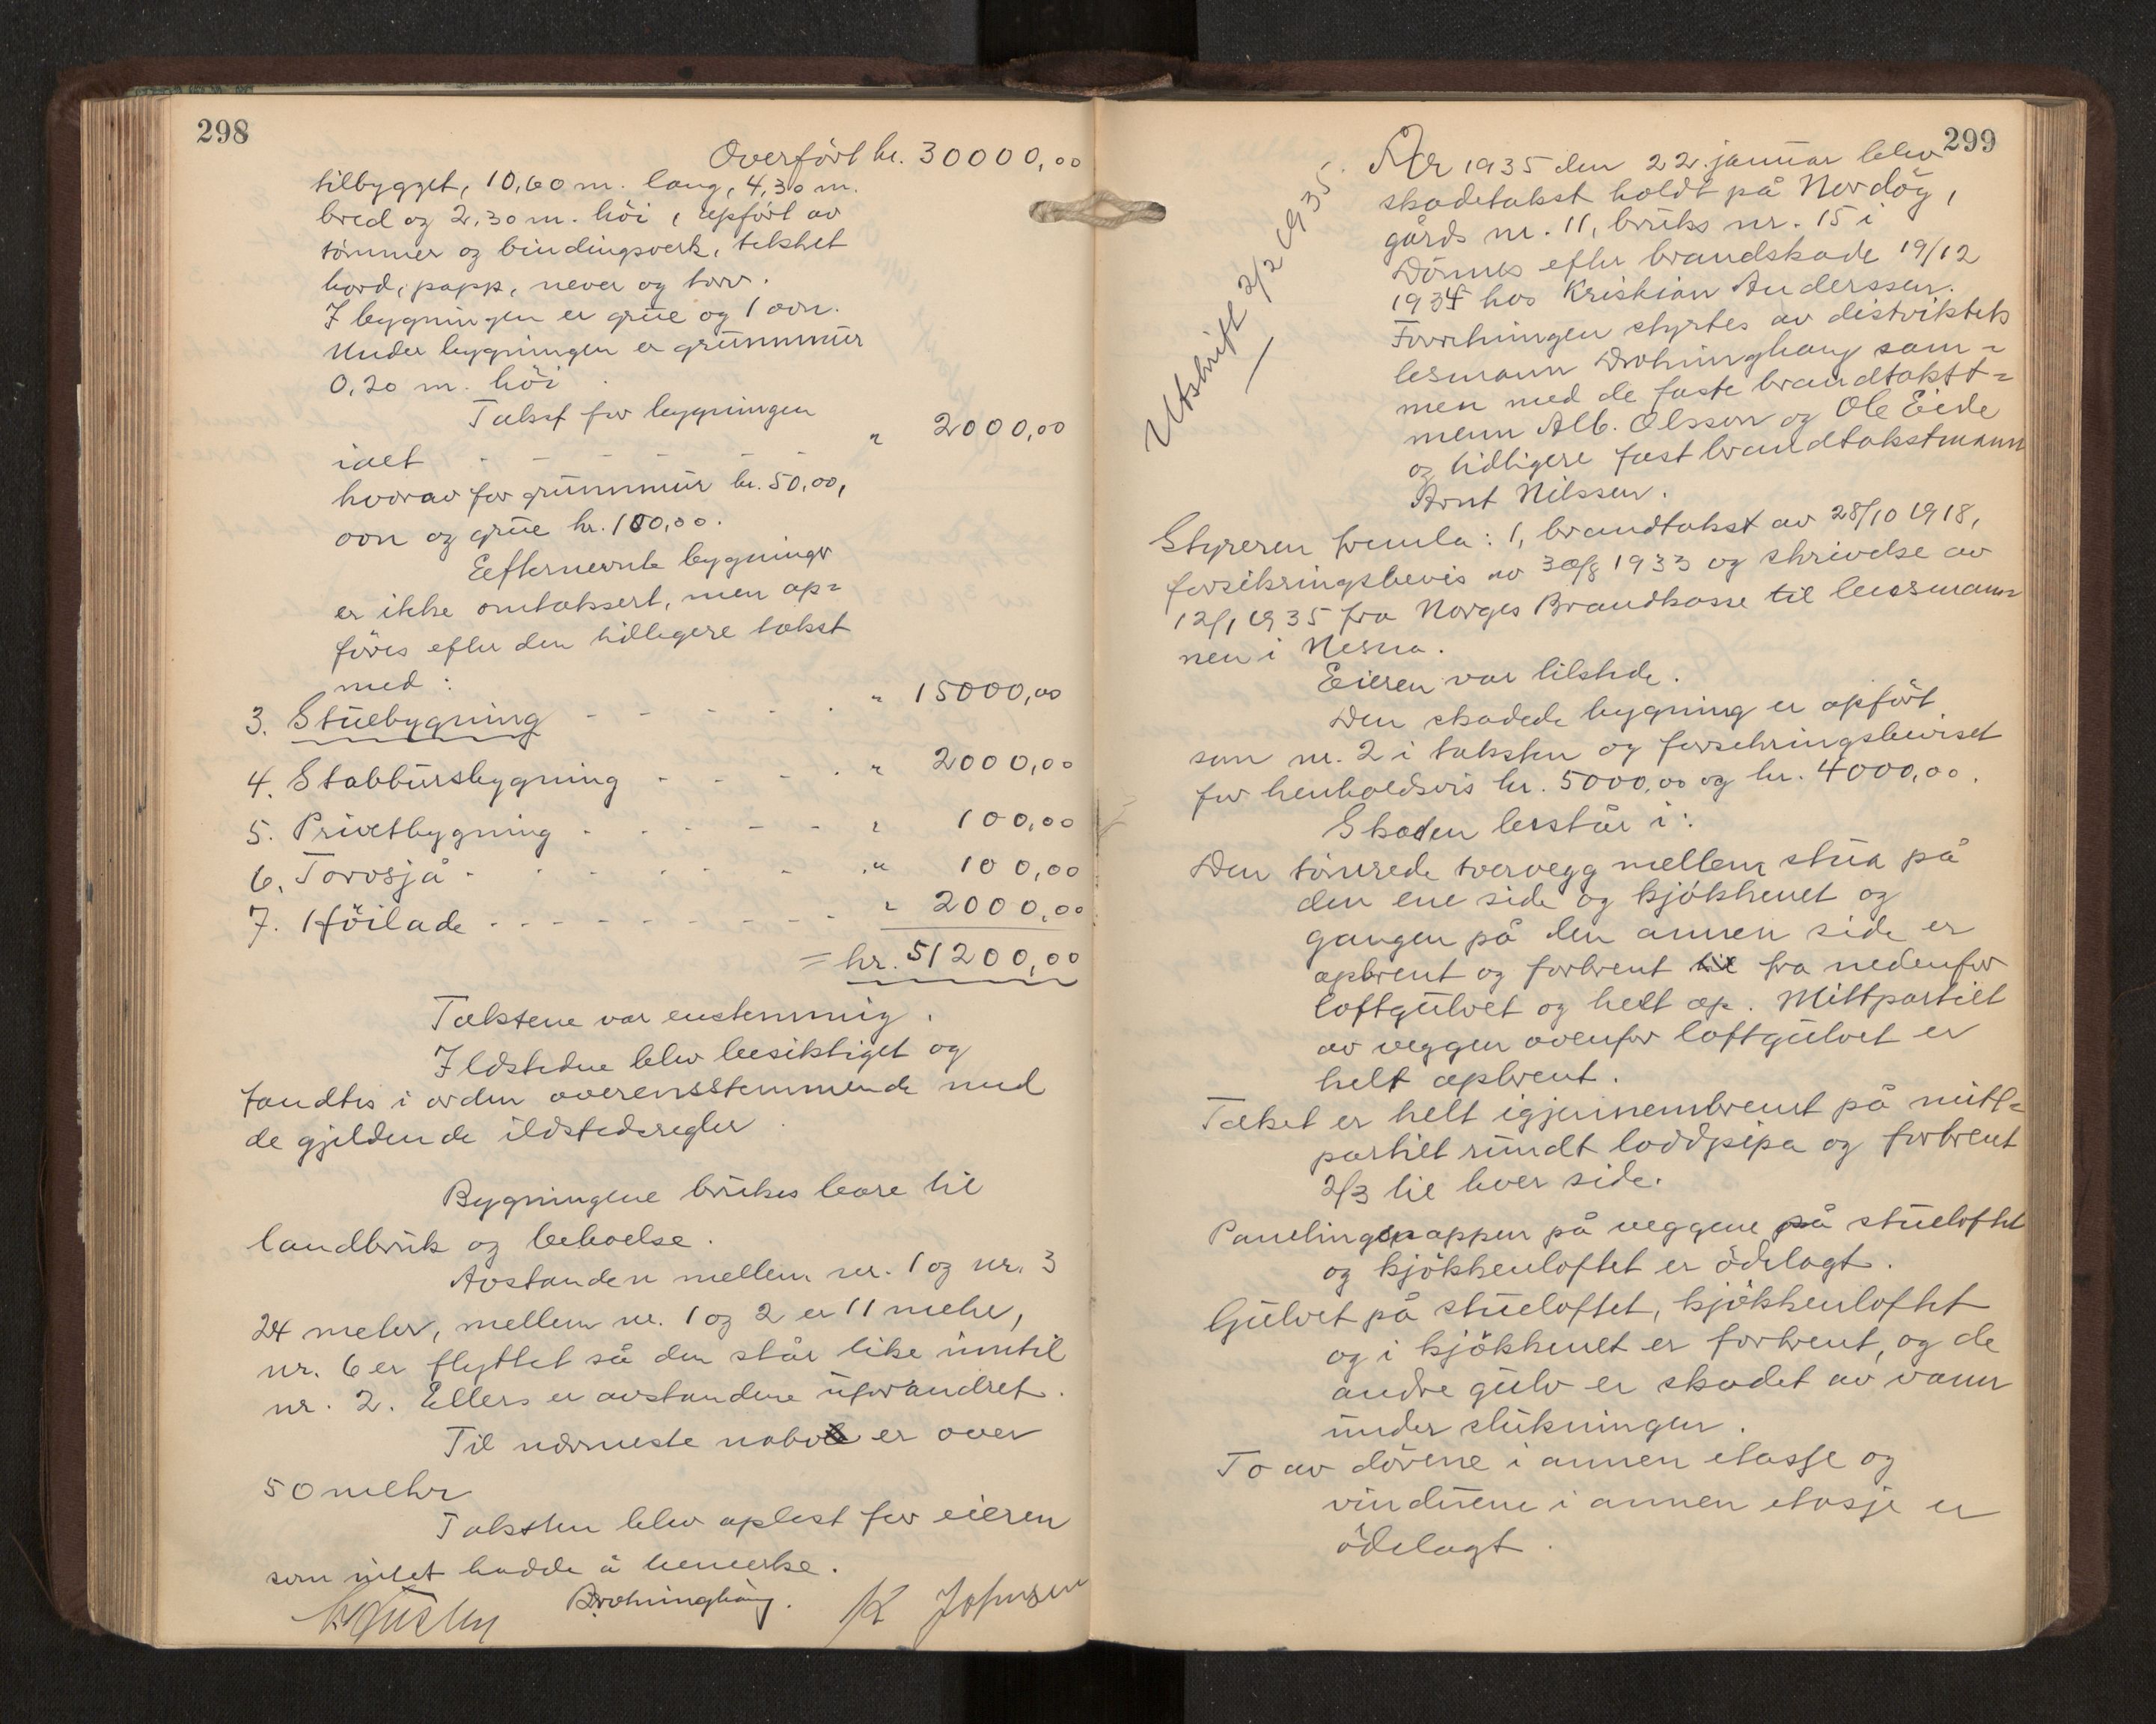 298
Overført kr. 30000,00
tilbygget, 10,60 m. lang, 4,30 m.
bred og 2,30 m. höi, opfört av
tömmer og bindingsverk, tekket
bord, papp, never og torv.
I bygningen er grue og 1 ovn.
Under bygningen er grunnmur
0,20 m. höi.
Takst for bygningen
ialt - - - - - " 2000,00
hvorav for grunnmur kr. 50,00,
ovn og grue kr. 100,00.
Efternevnte bygninger
er ikke omtaksert, men op=
föres efter den tidligere takst
med:
3. Stuebygning - - - - - " 15000,00
4. Stabbursbygning - - - - " 2000,00
5. Privetbygning - - - - - " 100,00
6. Torvsjå - - - - - - " 100,00
7. Höilade - - - - - - - - " 2000,00
= kr. 51200,00
Takstene var enstemmig.
Ildstedene blev besiktiget og
fandtes i orden overensstemmende med
de gjeldende ildstedsregler.
Bygningene brukes bare til
landbruk og beboelse.
Avstanden mellem nr. 1 og nr. 3
24 meter, mellem nr. 1 og 2 er 11 meter,
nr. 6 er flyttet så den står like inntil
nr. 2. Ellers er avstandene uforandret.
Til nærmeste nabo er over
50 meter
Taksten blev oplest for eieren
som intet hadde å bemerke.
Drohninghaug. K Johnsen
299
Utskrift 2/2 1935.
År 1935 den 22. januar blev
skadetakst holdt på Nordög,
gårds nr. 11, bruks nr. 15 i
Dönnes efter brandskade 19/12
1934 hos Kristian Anderssen.
Forretningen styrtes av distriktets
lensmann Drohninghaug sam=
men med de faste brandtakst=
menn Alb. Olsson og Ole Eide
og tidligere fast brandtakstmann
Arnt Nilssen.
Styreren fremla: 1, brandtakst av 28/10 1918,
forsikringsbevis av 30/8 1933 og skrivelse av
12/1 1935 fra Norges Brandkasse til lensmann=
nen i Nesna.
Eieren var tilstede.
Den skadede bygning er opfört
som nr. 2 i taksten og forsikringsbeviset
for henholdsvis kr. 5000,00 og kr. 4000,00.
Skaden består i:
Den tömrede tvervegg mellem stua på
den ene side og kjökkenet og
gangen på den annen side er
opbrent og forbrent til fra nedenfor
loftgulvet og helt op. Mittpartiet
av veggen ovenfor loftgulvet er
helt opbrent.
Taket er helt igjennembrent på mitt=
partiet rundt loddpipa og forbrent
2/3 til hver side.
Panelingspappen på veggene på stueloftet
og kjökkenloftet er ödelagt.
Gulvet på stueloftet, kjökkenloftet
og i kjökkenet er forbrent, og de
andre gulv er skadet av vann
under slukningen.
To av dörene i annen etasje og
vinduene i annen etasje er
ödelagt.